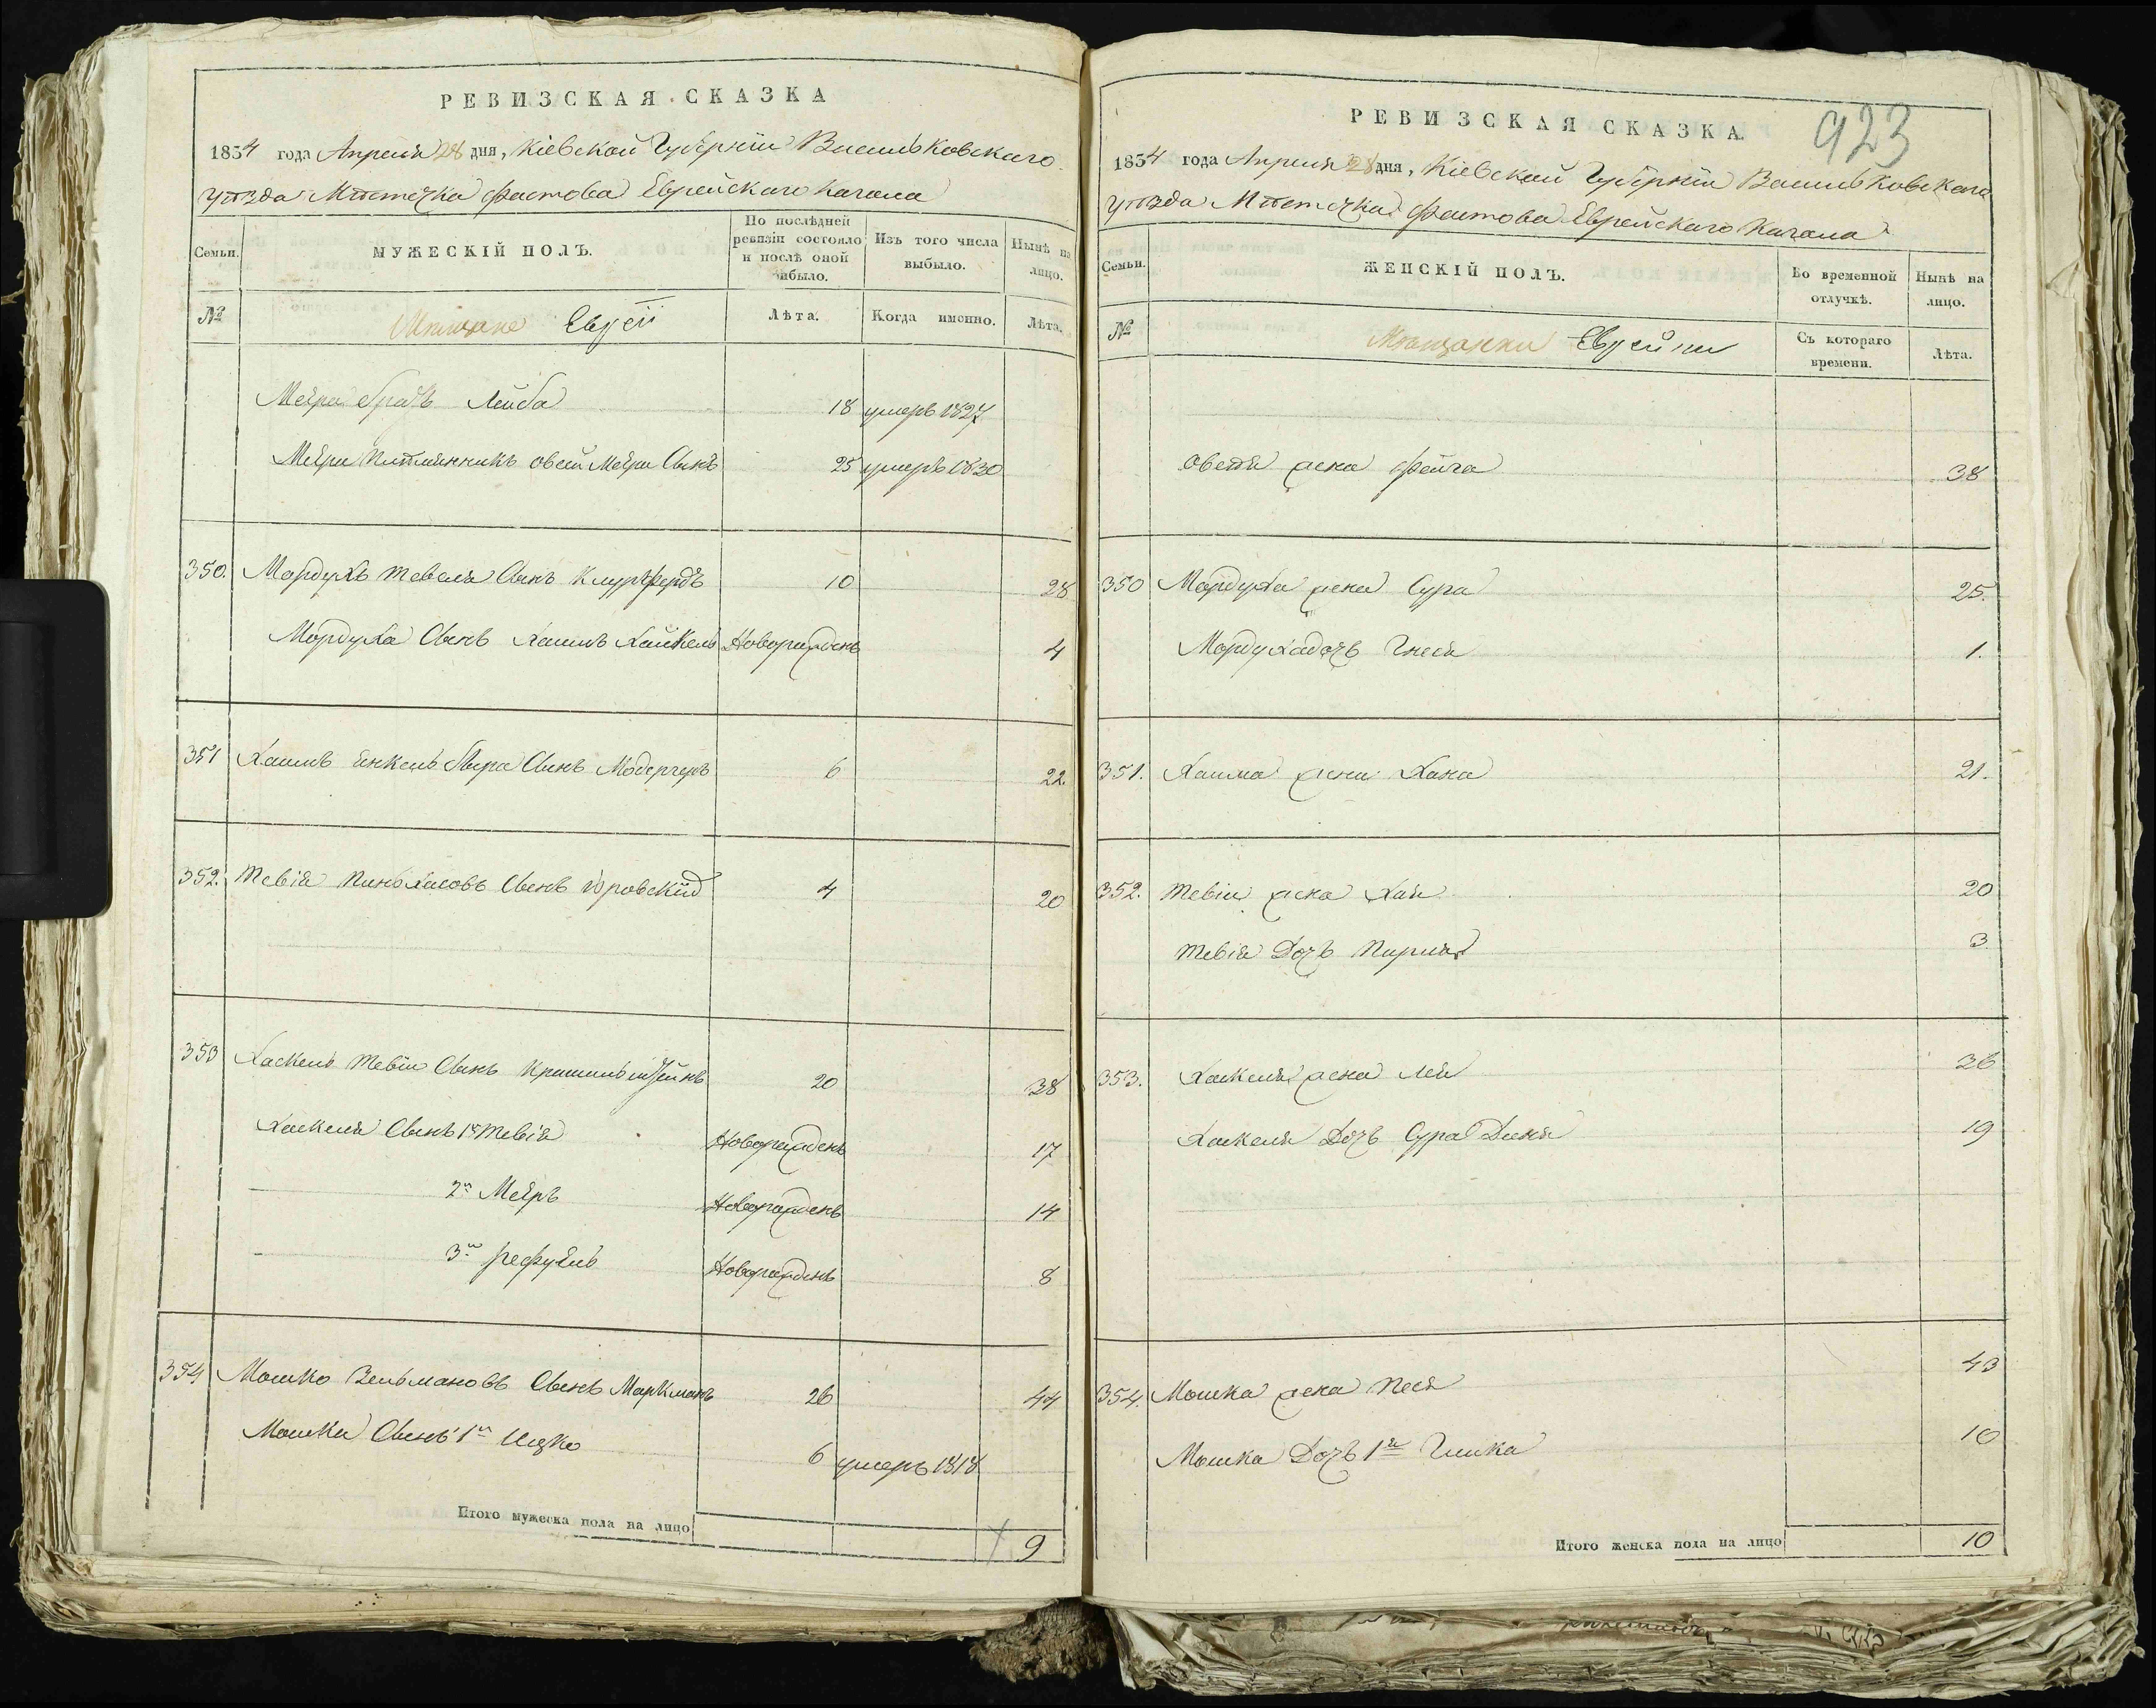 РЕВИЗСКАЯ СКАЗКА
1834 года Апреля 28 дня, Кіевской Губерніи Васильковскаго
уѣзда Мѣстечка Фастова Еврейскаго Кагала
Семьи.
МУЖЕСКІЙ ПОЛЪ.
По послѣдней ревизіи состояло и послѣ оной прибыло.
Изъ того числа выбыло.
Нынѣ на лицо.
№
Мѣщане Евреи
Лѣта.
Когда именно.
Лѣта.
Меера братъ Лейба 18 умеръ 1827
Меера племянникъ Овсей Меера Сынъ 25 умеръ 1830
350. Мордухъ Тевеля Сынъ 10 28
Мордуха Сынъ Хаимъ Хайкель Новорожденъ 4
351 Хаимъ Янкель Сынъ 6 22.
352. Тевія Пиньхасовъ Сынъ 4 20
353 Хаскель Тевіи Сынъ 20 38
Хаскеля Сынъ 1й Тевія Новорожденъ 17
2й Мееръ Новорожденъ 14
3й Рефуелъ Новорожденъ 8
354 Мошко Зельмановъ Сынъ Маркманъ 26 44
Мошки Сынъ 1й Ицко 6 умеръ 1818
Итого мужеска пола на лицо 9
923
РЕВИЗСКАЯ СКАЗКА
1834 года Апреля 28 дня, Кіевской Губерніи Васильковскаго
уѣзда Мѣстечка Фастова Еврейскаго Кагала
Семьи.
ЖЕНСКІЙ ПОЛЪ.
Во временной отлучкѣ.
Нынѣ на лицо.
№
Мѣщанки Еврейки
Съ котораго времени.
Лѣта.
Овсея жена Фейга 38
350 Мордуха жена Сура 25.
Мордуха дочь Гнеся 1.
351. Хаима жена Хана 21.
352. Тевіи жена Хая 20
Тевія Дочь 3
353. Хаскеля жена Лея 36
Хаскеля Дочь Сура 19
354. Мошка жена Песя 43
Мошка Дочь 1я 10
Итого женска пола на лицо 10